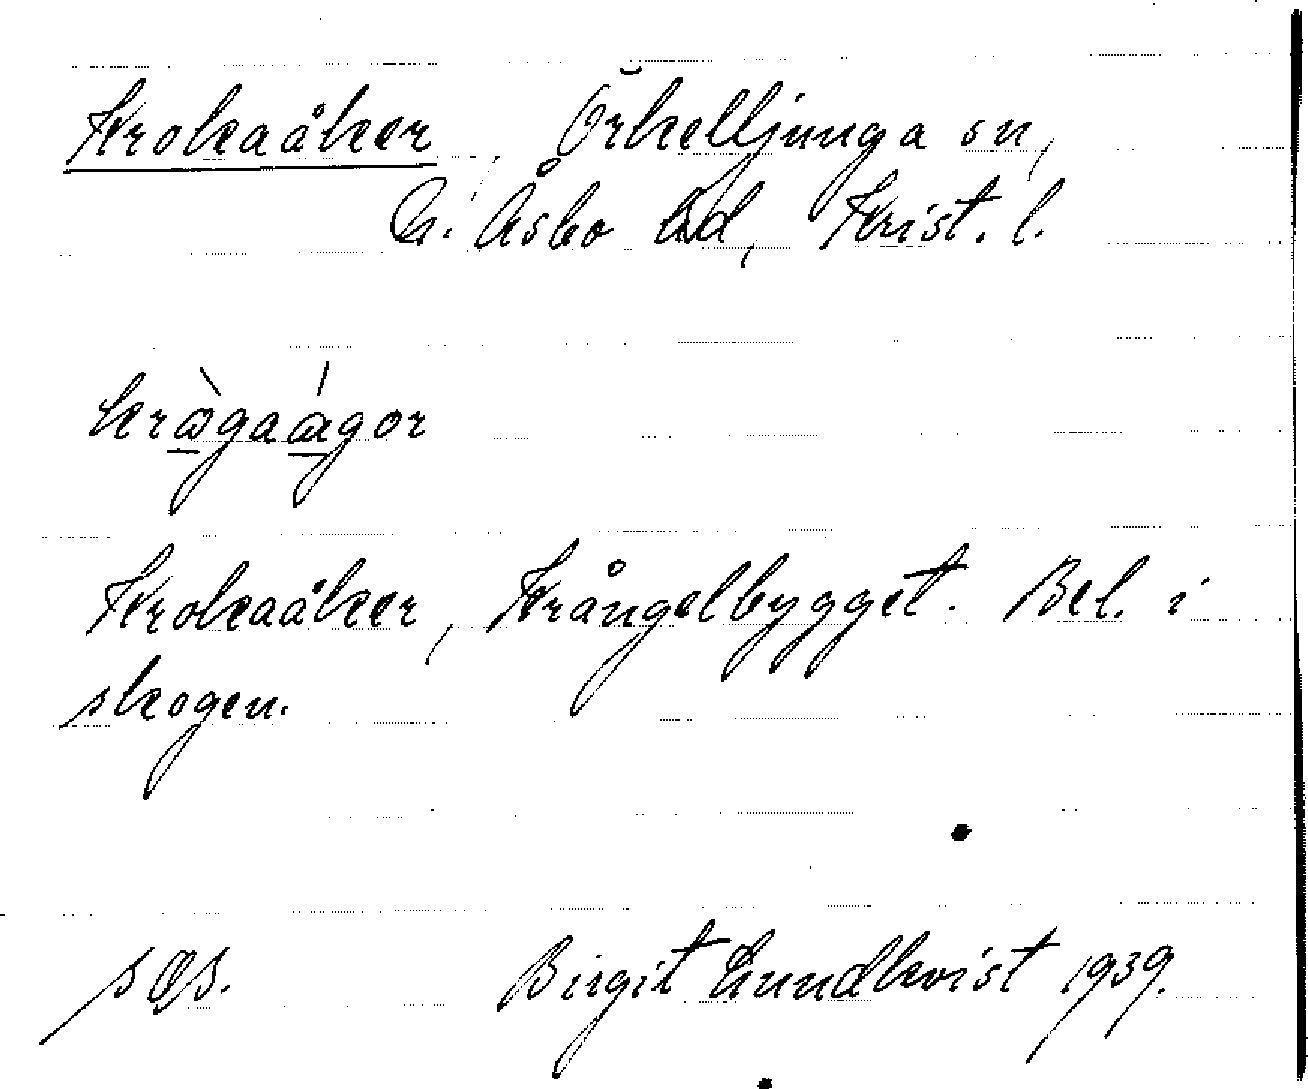 Krokaåker, Örkelljunga sn,
N. Åsbo hd, Krist. l.
krågaågor
Krokaåker, Krångelbygget. Bel. i
skogen.
Birgit Lundkvist 1939.